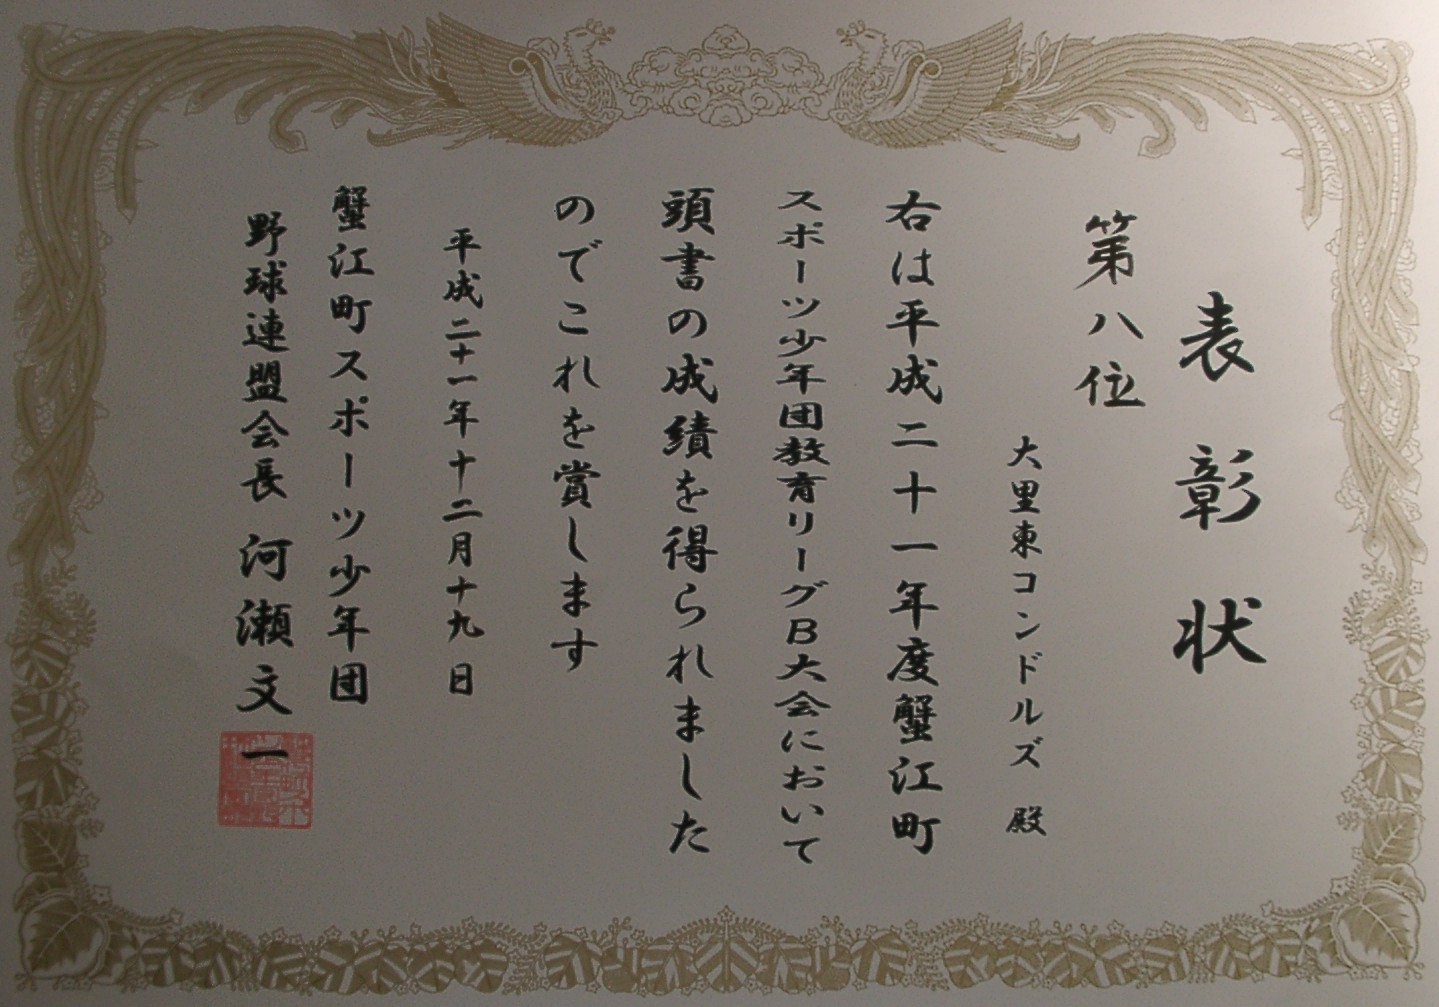 表彰状
第八位
大里東コンドルズ 殿
右は平成二十一年度蟹江町
スポーツ少年団教育リーグB大会において
頭書の成績を得られました
のでこれを賞します
平成二十一年十二月十九日
蟹江町スポーツ少年団
野球連盟会長 河瀬文一